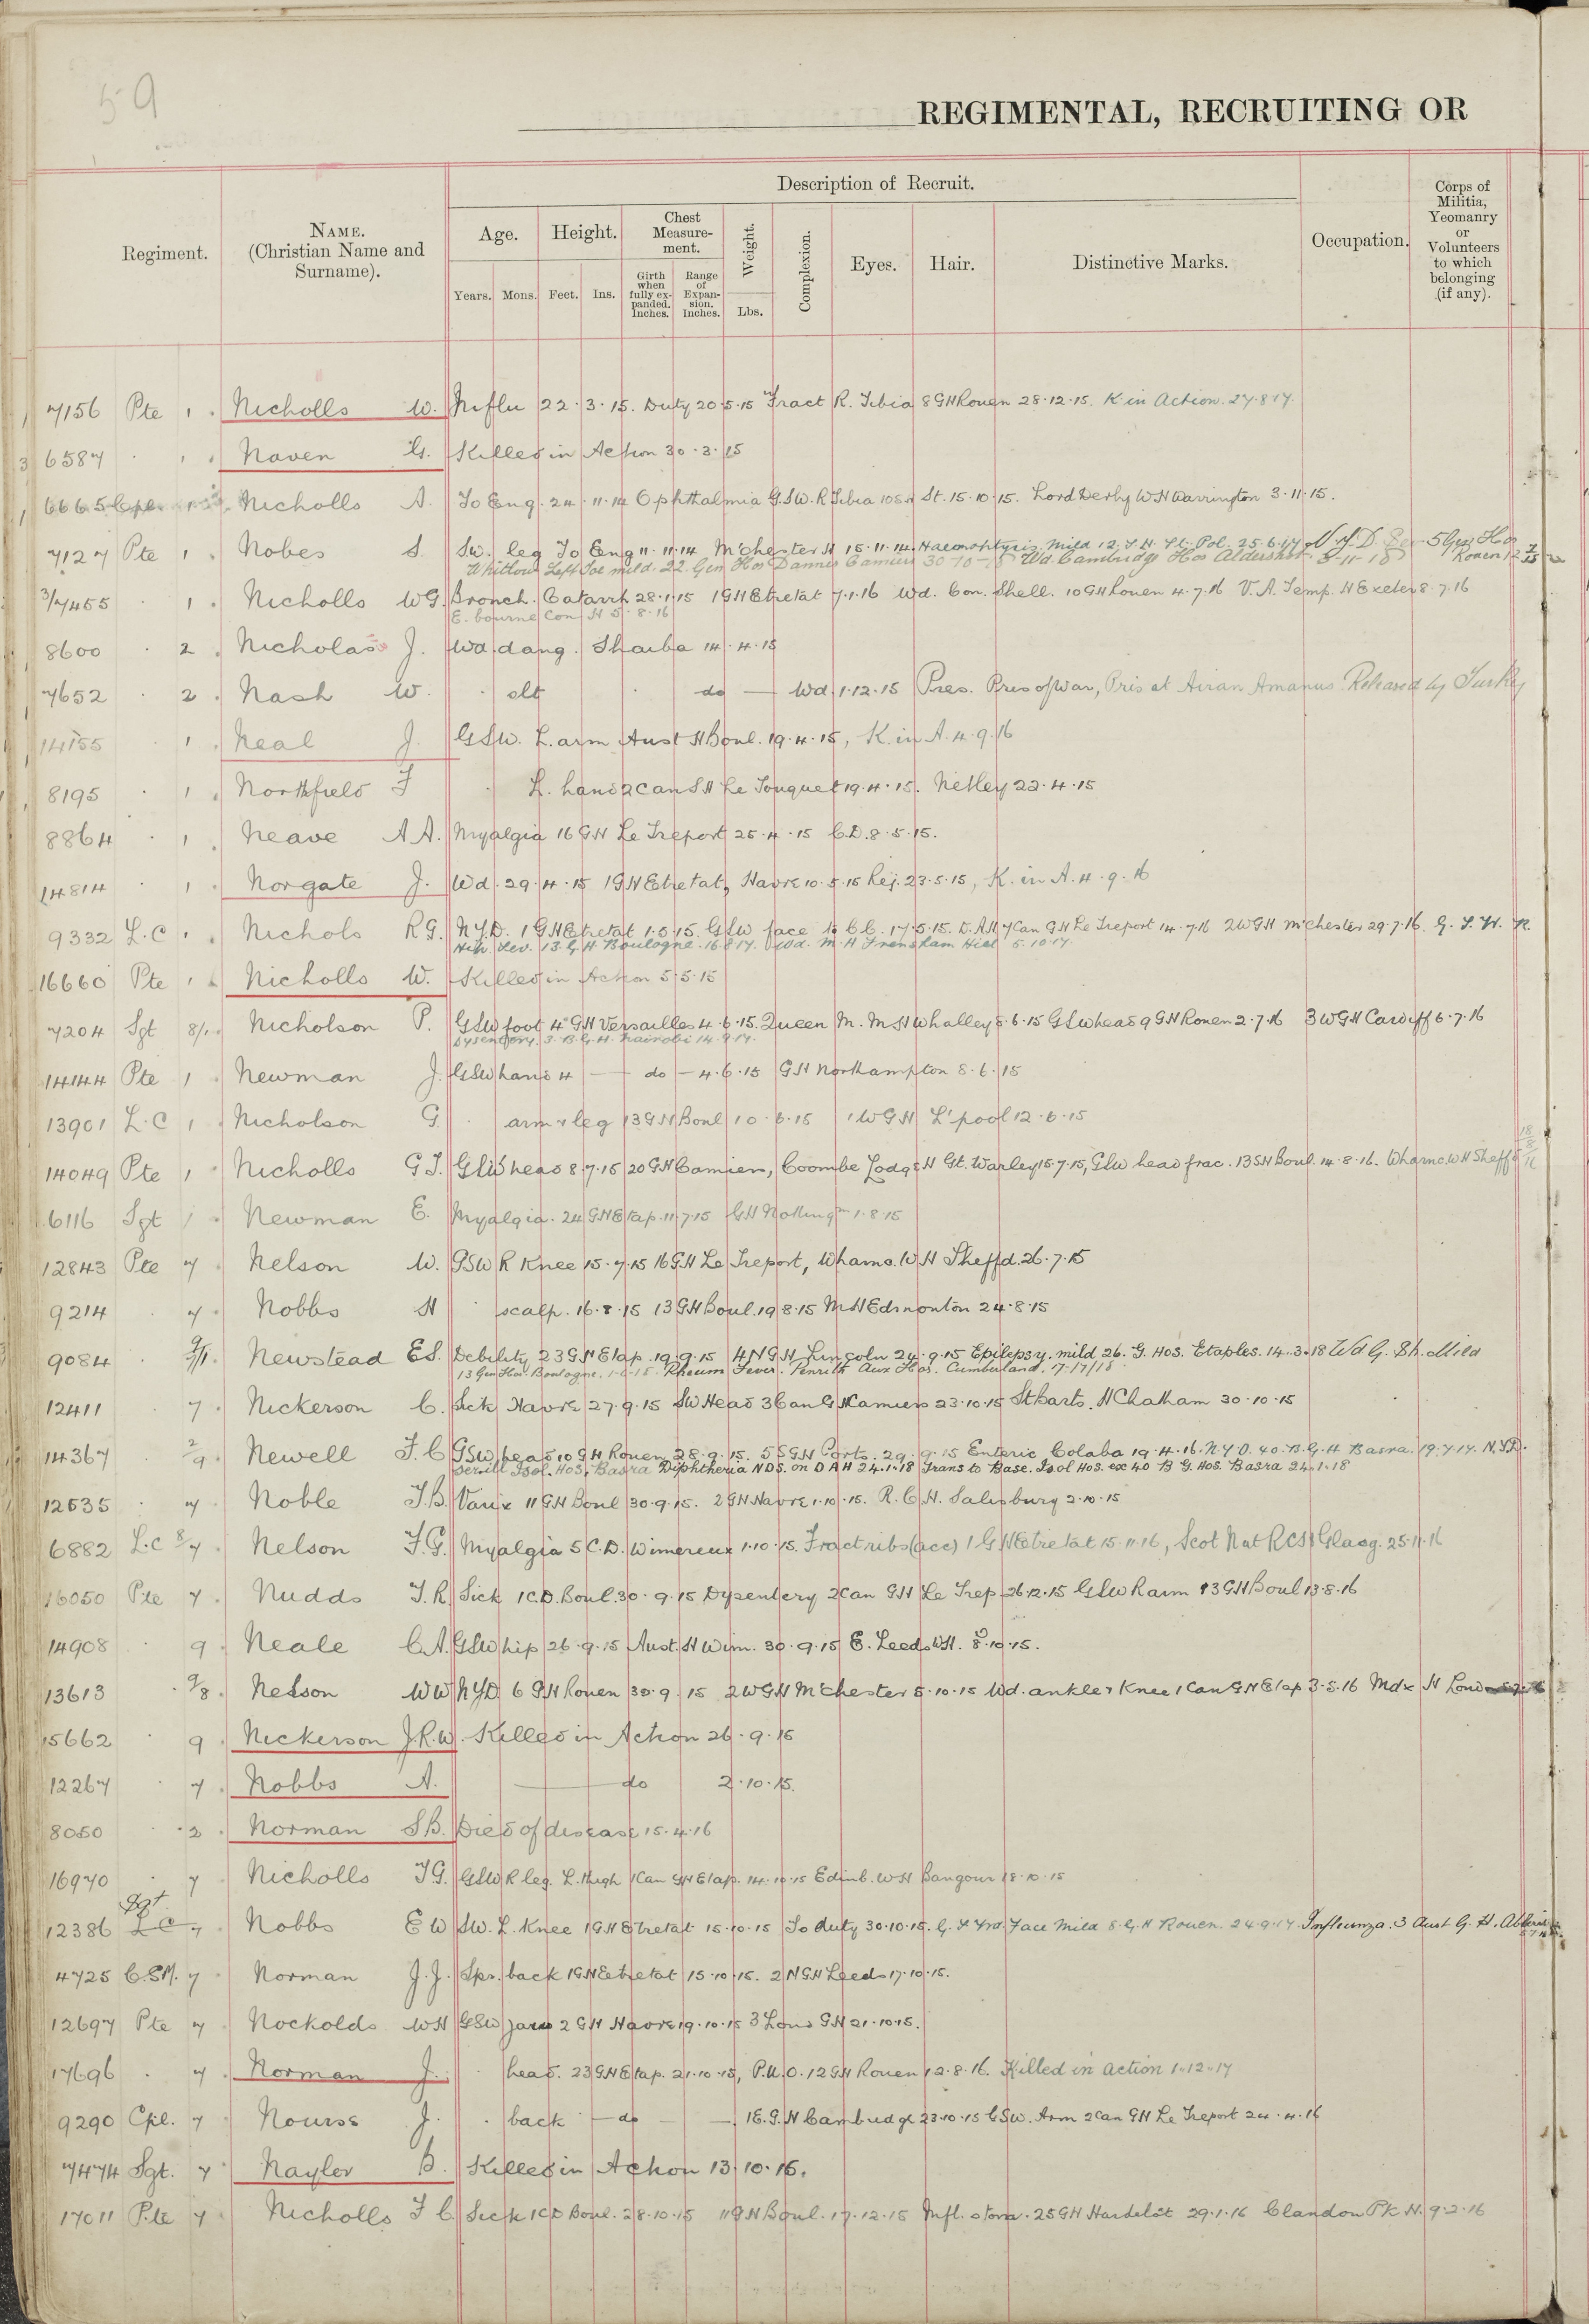 59
REGIMENTAL, RECRUITING OR
Regiment.
NAME.
(Christian Name and
Surname).
Description of Recruit.
Age.
Height.
Chest
Measure-
ment.
Weight.
Complexion.
Eyes.
Hair.
Distinctive Marks.
Occupation.
Corps of
Militia,
Yeomanry
or
Volunteers
to which
belonging
(if any).
Years.
Mons.
Feet.
Ins.
Girth
when
fully ex-
panded.
Inches.
Range
of
Expan-
sion.
Inches.
Lbs.
7156 Pte 1 Nicholls W. Influ 22.3.15. Duty 20.5.15 Fract R. Tibia 8GH Rouen 28.12.15. K in Action. 27.8.17.
3 6587 Naven G. Killed in Action 30.3.15
6665 Cpl Nicholls A. To Eng. 24.11.14 Ophthalmia G.S.W. R Tibia St. 15.10.15. Lord Derby W H Warrington 3.11.15.
7127 Pte 1 Nobes S. Sw. leg To Eng 11.11.14 M'chester H 15.11.14. Haemophtysis mild 12. St. Pol. 25.6.17 N.Y.D. 5 Gen Hos
Whitlow Left Toe mild. 22 Gen Hos Dannes Camiers 30-10-18 Wd. Cambridge Hos Aldershot 5-11-18 Rouen
3/7455 1 Nicholls WG. Bronch. Catarrh 28.1.15 1GH Etretat 7.1.16 Wd. Con. Shell. 10GH Rouen 4.7.16 V.A. Temp. H Exeter 8.7.16
E. bourne Con H 5.8.16
8600 2 Nicholas J. Wd. dang. Shaiba 14.4.15
7652 2 Nash W. slt do — Wd 1.12.15 Pres. Pris of War, Pris at Airan Amanus. Released by Turkey
14155 1 Neal J. GSW. L. arm Aust H Boul. 19.4.15, K. in A. 4.9.16
8195 1 Northfield F L. hand 2 Can S H Le Touquet 19.4.15. Netley 22.4.15
8864 1 Neave A A. Myalgia 16 GH Le Treport 25.4.15 C.D. 8.5.15.
14814 1 Norgate J. Wd. 29.4.15 1GH Etretat, Havre 10.5.15 Rej. 23.5.15, K. in A. 4.9.16
9332 L.C 1 Nichols RG. N.Y.D. 1GH Etretat 1.5.15. GSW face 10 C.C. 17.5.15. D.A.H 7 Can GH Le Treport 14.7.16 2WGH M'chester 29.7.16
13 G H Boulogne 16.8.17. Wd. M.H Frensham Hill 5.10.17.
16660 Pte 1 Nicholls W. Killed in Action 5.5.15
7204 Sgt 8/1 Nicholson P. GSW foot 4 GH Versailles 4.6.15. Queen M. M H Whalley 8.6.15 GSW head 9GH Rouen 2.7.16 3WGH Cardiff 6.7.16
Dysentery. 3. B.G.H. Nairobi 14.9.17.
14144 Pte 1 Newman J. GSW hand 4 — do — 4.6.15 GH Northampton 8.6.15
13901 L.C 1 Nicholson G. arm & leg 13GH Boul 10.6.15 1WGH L'pool 12.6.15
14049 Pte 1 Nicholls G J. GSW head 8.7.15 20GH Camiers, Coombe Lodge H Gt. Warley 15.7.15, GSW head frac. 13SH Boul. 14.8.16. Wharnc. W H Sheff 18/8/16
6116 Sgt Newman E. Myalgia. 24GH Etap. 11.7.15 GH Notting'm 1.8.15
12843 Pte 7 Nelson W. GSW R Knee 15.7.15 16GH Le Treport, Wharnc. W H Sheffd. 26.7.15
9214 7 Nobbs H scalp. 16.8.15 13GH Boul. 19.8.15 M H Edmonton 24.8.15
9084 9/1 Newstead ES. Debility 23GH Etap. 19.9.15 4NGH Lincoln 24.9.15 Epilepsy, mild 26. G. Hos. Etaples. 14.3.18 Wd G. Sh. Mild
13 Gen Hos. Boulogne. Rheum Fever. Penrith Aux Hos. Cumberland.
12411 7 Nickerson C. Sick Havre 27.9.15 SW Head 3 Can G H Camiers 23.10.15 St Barts. H Chatham 30.10.15
14367 2/9 Newell F.C GSW head 10 GH Rouen 28.9.15. 5SGH Ports. 29.9.15 Enteric Colaba 19.4.16. N.Y.D. 40. B.G.H. Basra. 19.7.17. N.Y.D.
Isol. Hos. Basra Diphtheria NDS. on D A H 24.1.18 Trans to Base. Isol Hos. ex 40 B G. Hos. Basra 24.1.18
12535 7 Noble J.B. Varix 11GH Boul 30.9.15. 2GH Havre 1.10.15. R.C.H. Salisbury 2.10.15
6882 L.C 8/7 Nelson F.G. Myalgia 5 C.D. Wimereux 1.10.15. Fract ribs (acc) 1GH Etretat 15.11.16, Scot Nat RCH Glasg. 25.11.16
16050 Pte 7 Nudds J.R. Sick 1C.D. Boul. 30.9.15 Dysentery 2 Can GH Le Trep 26.12.15 GSW R arm 13GH Boul 13.8.16
14908 9 Neale C.A. GSW hip 26.9.15 Aust. H Wim. 30.9.15 E. Leeds W.H. 8.10.15.
13613 9/8 Nelson WW NYD 6 GH Rouen 30.9.15 2WGH M'chester 5.10.15 Wd. ankle & Knee 1 Can GH Etap 3.5.16 Mdx H Lond
15662 9 Nickerson J.R.W. Killed in Action 26.9.15
12267 7 Nobbs A. do 2.10.15.
8050 2 Norman S B. Died of disease 15.4.16
16970 7 Nicholls JG. GSW R leg. L. thigh 1 Can GH Etap. 14.10.15 Edinb. W H Bangour 18.10.15
12386 Sgt L C 7 Nobbs E W SW. L. Knee 1GH Etretat 15.10.15 To duty 30.10.15. Face Mild 8. G. H Rouen. 24.9.17. Influenza. 3 Aust G. H.
4725 C.S.M. 7 Norman J.J. Spr. back 1GH Etretat 15.10.15. 2NGH Leeds 17.10.15.
12697 Pte 7 Nockolds WH GSW jaw 2 GH Havre 19.10.15 3 Lond GH 21.10.15.
17696 7 Norman J. head. 23GH Etap. 21.10.15, P.U.O. 12GH Rouen 12.8.16. Killed in action 1-12-17
9290 Cpl. 7 Nourse J. back — do — 1E.G.H Cambridge 23.10.15 GSW. Arm 2 Can GH Le Treport 24.4.16
7474 Sgt. 7 Nayler B. Killed in Action 13.10.15.
17011 Pte 7 Nicholls F C Sick 1CD Boul. 28.10.15 11GH Boul. 17.12.15 Infl. stom. 25GH Hardelot 29.1.16 Clandon Pk H. 9.2.16